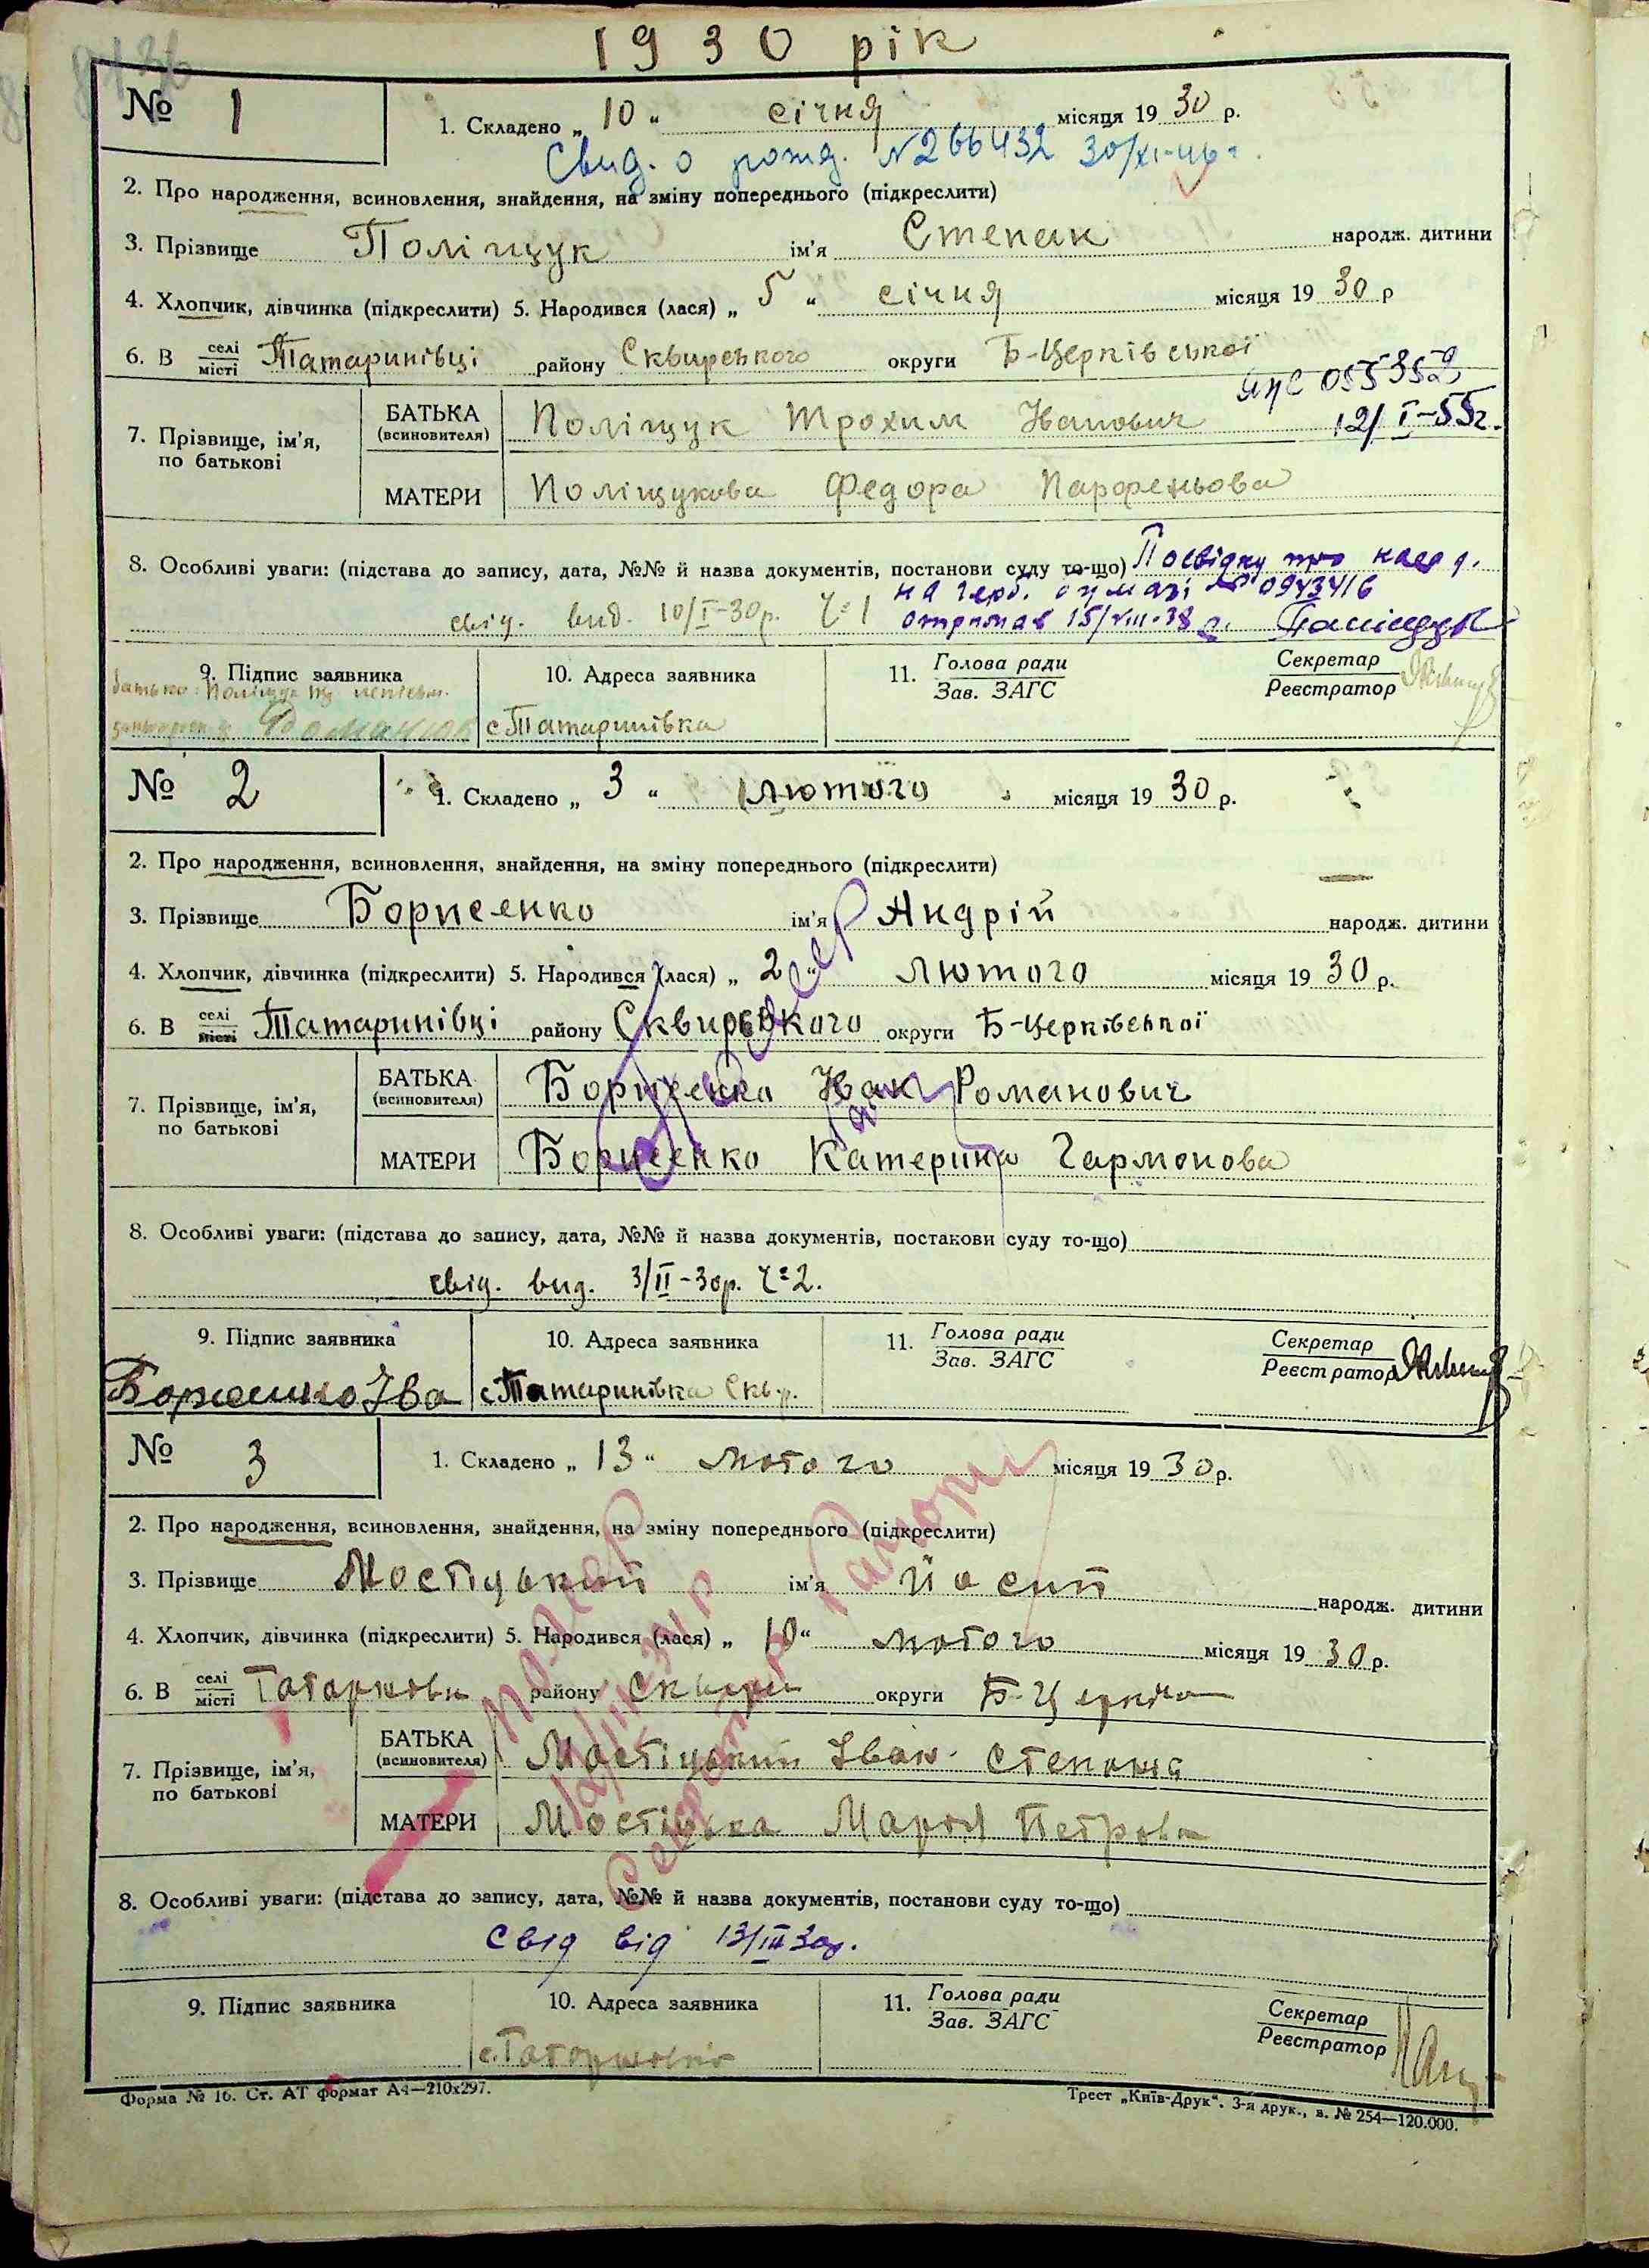 1930 рік
№ 1
1. Складено „ 10 “ січня місяця 19 30 р.
Свид. о рожд. №266432 30/XI-46 г.
2. Про народження, всиновлення, знайдення, на зміну попереднього (підкреслити)
3. Прізвище Поліщук ім'я Степан народж. дитини
4. Хлопчик, дівчинка (підкреслити) 5. Народився (лася) „ 5 “ січня місяця 19 30 р
6. В селі/місті Татаринівці району Сквирського округи Б-Церківської
055352
12/I-55г.
7. Прізвище, ім'я, по батькові
БАТЬКА (всиновителя) Поліщук Трохим Іванович
МАТЕРИ Поліщукова Федора Парфеньова
8. Особливі уваги: (підстава до запису, дата, №№ й назва документів, постанови суду то-що) Посвідку про народ.
на герб. бумазі № 0943416
свід. вид. 10/I-30р. Ч=1 отримав 15/VIII-38 р. Паліщук
9. Підпис заявника
10. Адреса заявника
11. Голова ради
Зав. ЗАГС
Секретар
Реєстратор
батько: Поліщук
с Татаринівка
№ 2
1. Складено „ 3 “ лютого місяця 19 30 р.
2. Про народження, всиновлення, знайдення, на зміну попереднього (підкреслити)
3. Прізвище Борисенко ім'я Андрій народж. дитини
4. Хлопчик, дівчинка (підкреслити) 5. Народився (лася) „ 2 “ лютого місяця 19 30 р.
6. В селі/місті Татаринівці району Сквирського округи Б-Церківської
7. Прізвище, ім'я, по батькові
БАТЬКА (всиновителя) Борисенко Іван Романович
МАТЕРИ Борисенко Катерина Гармонова
8. Особливі уваги: (підстава до запису, дата, №№ й назва документів, постанови суду то-що)
свід. вид. 3/II-30р. Ч=2.
9. Підпис заявника
10. Адреса заявника
11. Голова ради
Зав. ЗАГС
Секретар
Реєстратор
Борисенко Іва
с Татаринівка Сквр.
№ 3
1. Складено „ 13 “ лютого місяця 19 30 р.
2. Про народження, всиновлення, знайдення, на зміну попереднього (підкреслити)
3. Прізвище Мостіцький ім'я Йосип народж. дитини
4. Хлопчик, дівчинка (підкреслити) 5. Народився (лася) „ 10 “ лютого місяця 19 30 р.
6. В селі/місті району Сквири округи Б-Церкви
7. Прізвище, ім'я, по батькові
БАТЬКА (всиновителя) Мостіцький Іван
МАТЕРИ Мостіцька Марія Петрова
помер
Секретар
8. Особливі уваги: (підстава до запису, дата, №№ й назва документів, постанови суду то-що)
Свід від 13/III 30р.
9. Підпис заявника
10. Адреса заявника
11. Голова ради
Зав. ЗАГС
Секретар
Реєстратор
Форма № 16. Ст. АТ формат А4—210х297.
Трест „Київ-Друк“. 3-я друк., з. № 254—120.000.